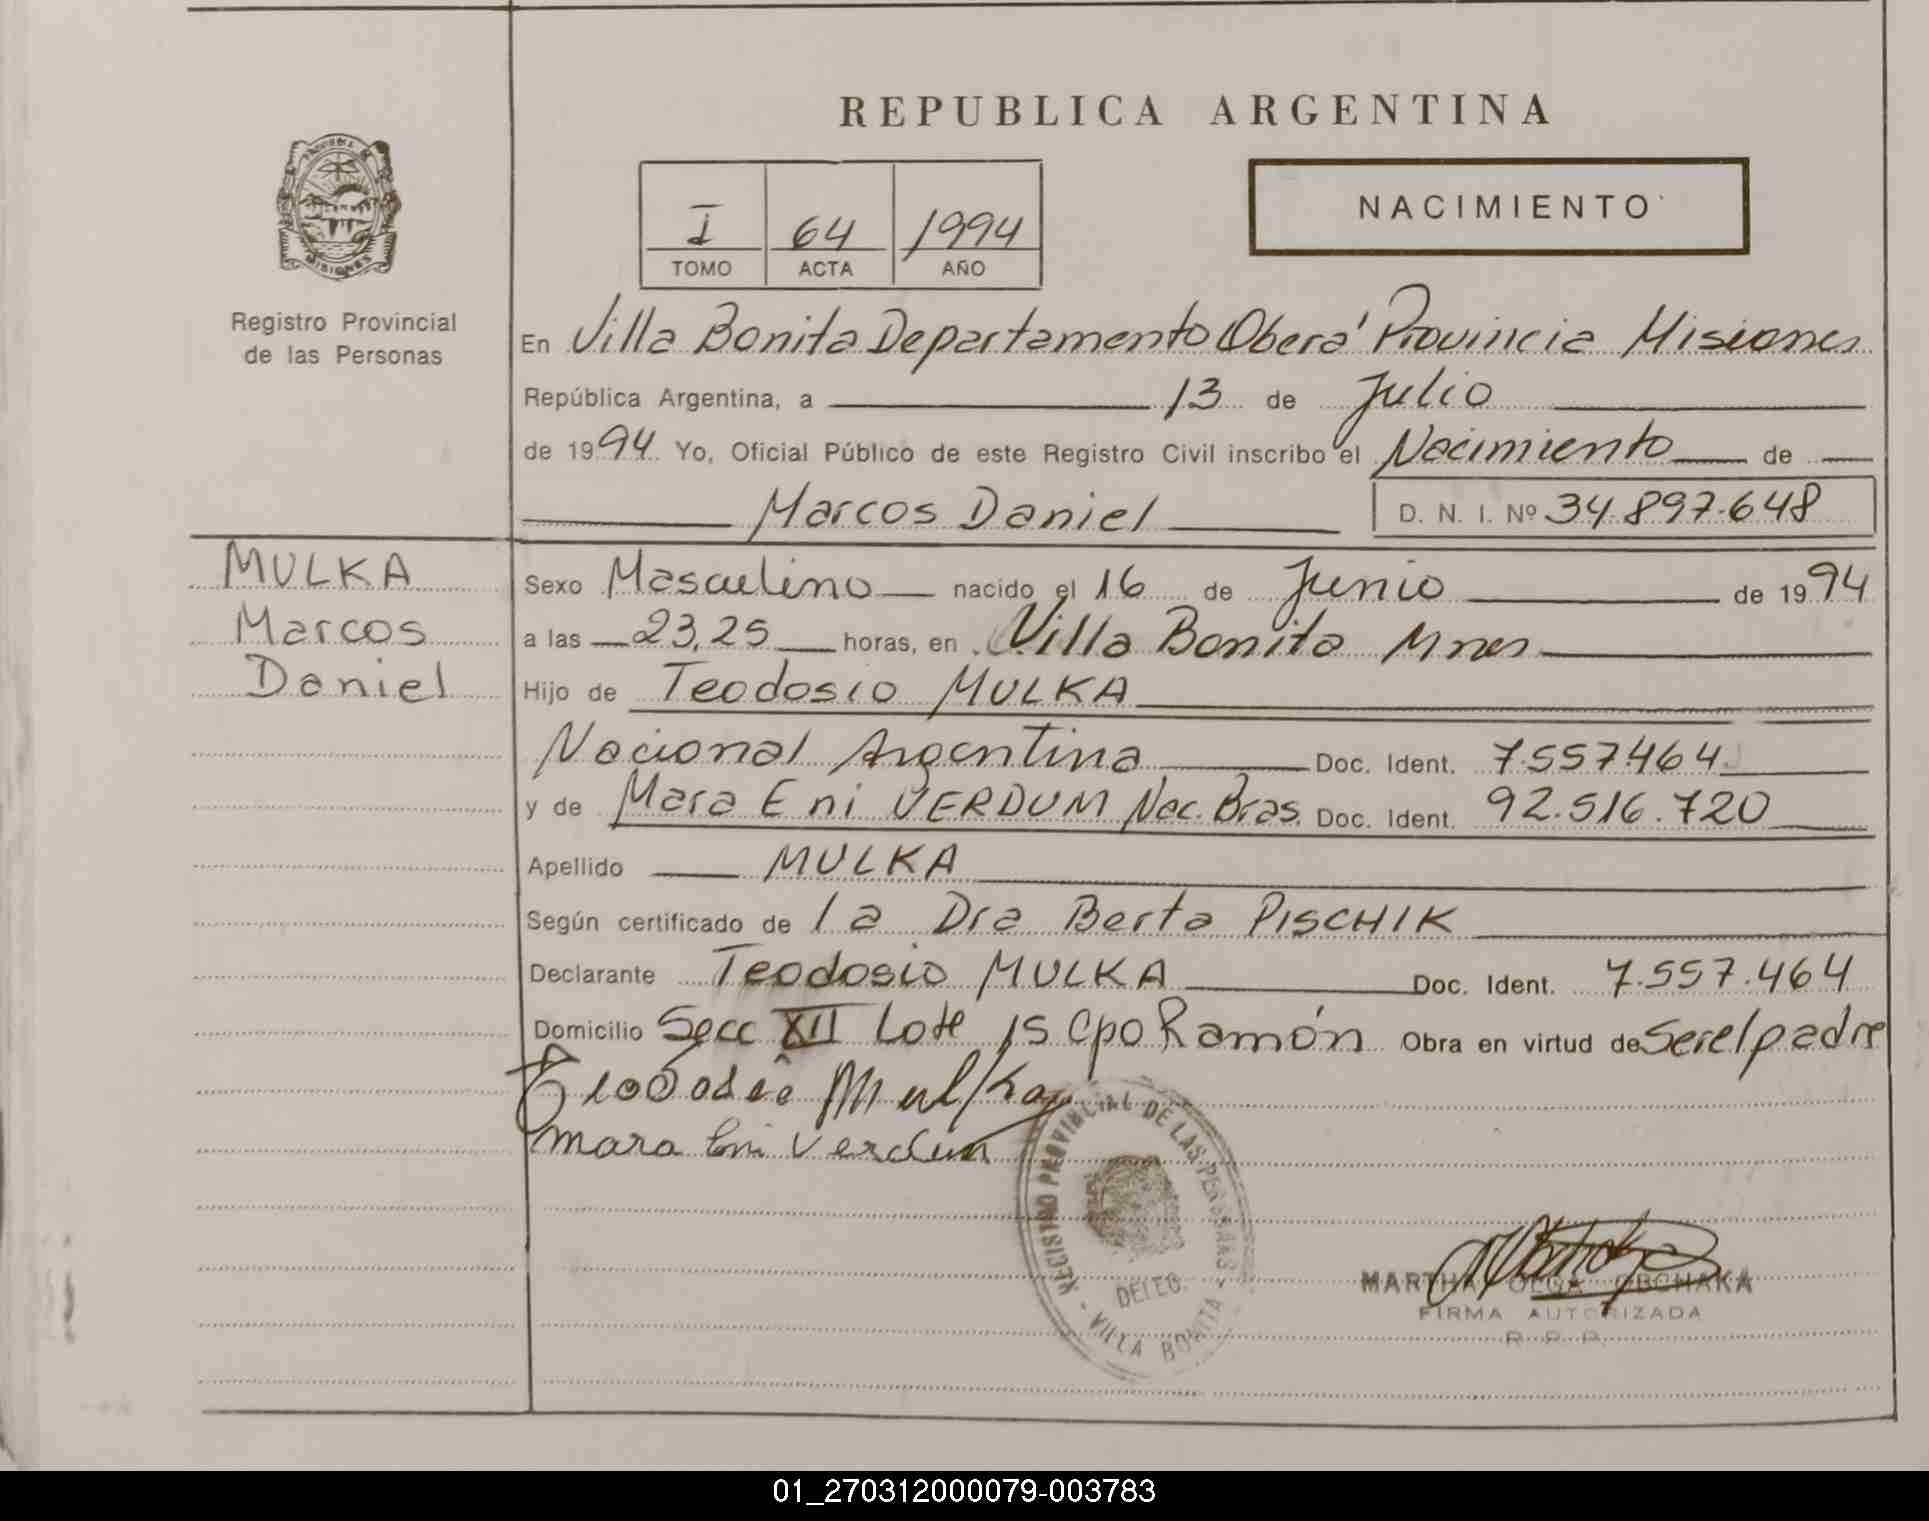 REPUBLICA ARGENTINA
PROVINCIA DE MISIONES
Registro Provincial
de las Personas
I 64 1994
TOMO ACTA AÑO
NACIMIENTO
En Villa Bonita Departamento Oberá Provincia Misiones
República Argentina, a 13 de Julio
de 1994 Yo, Oficial Público de este Registro Civil inscribo el Nacimiento de
Marcos Daniel D. N. I. Nº 34.897.648
MULKA
Marcos
Daniel
Sexo Masculino nacido el 16 de Junio de 1994
a las 23,25 horas, en Villa Bonita Mnes
Hijo de Teodosio MULKA
Nacional Argentina Doc. Ident. 7.557.464
y de Mara Eni VERDUM Nac. Bras. Doc. Ident. 92.516.720
Apellido MULKA
Según certificado de la Dra Berta PISCHIK
Declarante Teodosio MULKA Doc. Ident. 7.557.464
Domicilio Secc XII Lote 15 Cpo Ramón Obra en virtud de Ser el padre
Mulka
Mara Eni Verdum
REGISTRO PROVINCIAL DE LAS PERSONAS
DELEG.
VILLA BONITA
MARTHA OLGA OBCHAKA
FIRMA AUTORIZADA
R. P. P.
01_270312000079-003783